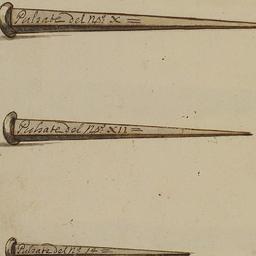 Pulsate del nº X =
Pulsate del nº XII =
Pulsate del nº